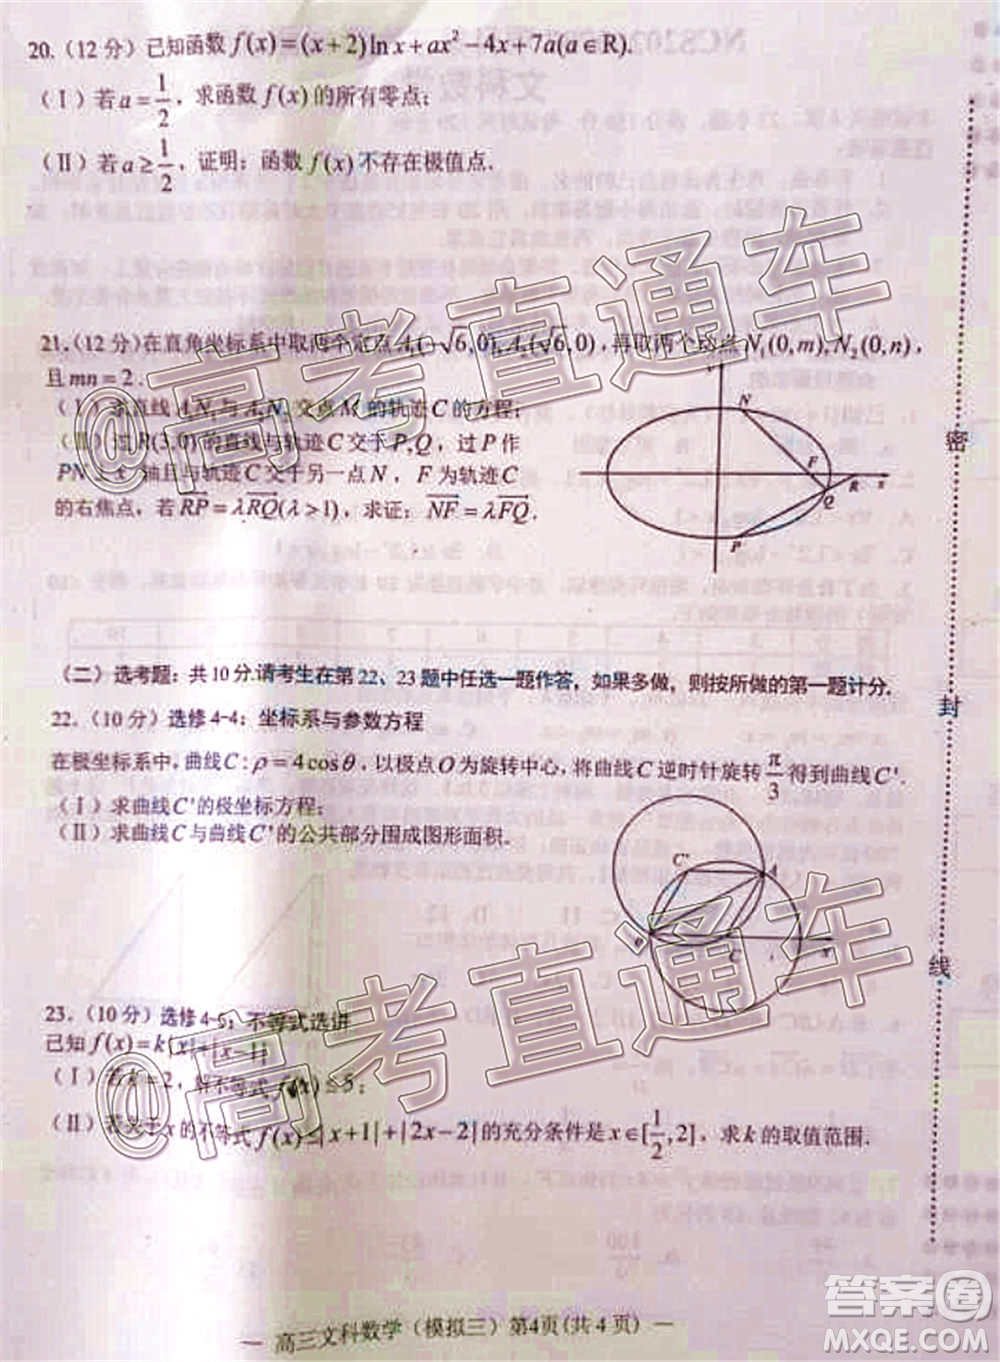 20.（12 分）已知函数 f(x)=(x+2)ln x+ax²-4x+7a(a∈R).
（Ⅰ）若 a=1/2，求函数 f(x) 的所有零点；
（Ⅱ）若 a≥1/2，证明：函数 f(x) 不存在极值点.
21.（12 分）在直角坐标系中取两个定点 A₁(-√6,0),A₂(√6,0)，再取两个动点 N₁(0,m),N₂(0,n)，
且 mn=2.
（Ⅰ）求直线 A₁N₁ 与 A₂N₂ 交点 M 的轨迹 C 的方程；
（Ⅱ）过 R(3,0) 的直线与轨迹 C 交于 P,Q，过 P 作
PN⊥x 轴且与轨迹 C 交于另一点 N，F 为轨迹 C
的右焦点，若 RP=λRQ(λ>1)，求证：NF=λFQ.
y
N
F
R
x
Q
P
（二）选考题：共 10 分.请考生在第 22、23 题中任选一题作答，如果多做，则按所做的第一题计分.
22.（10 分）选修 4-4：坐标系与参数方程
在极坐标系中,曲线 C:ρ=4cosθ，以极点 O 为旋转中心，将曲线 C 逆时针旋转 π/3 得到曲线 C'.
（Ⅰ）求曲线 C' 的极坐标方程；
（Ⅱ）求曲线 C 与曲线 C' 的公共部分围成图形面积.
C'
A
O
C
x
23.（10 分）选修 4-5：不等式选讲
已知 f(x)=k|x|+|x-1|
（Ⅰ）若 k=2，解不等式 f(x)≤5；
（Ⅱ）若关于 x 的不等式 f(x)≤|x+1|+|2x-2| 的充分条件是 x∈[1/2,2]，求 k 的取值范围.
— 高三文科数学（模拟三）第4页(共 4 页) —
密
封
线
@高考直通车
@高考直通车
答案圈
MXQE.COM